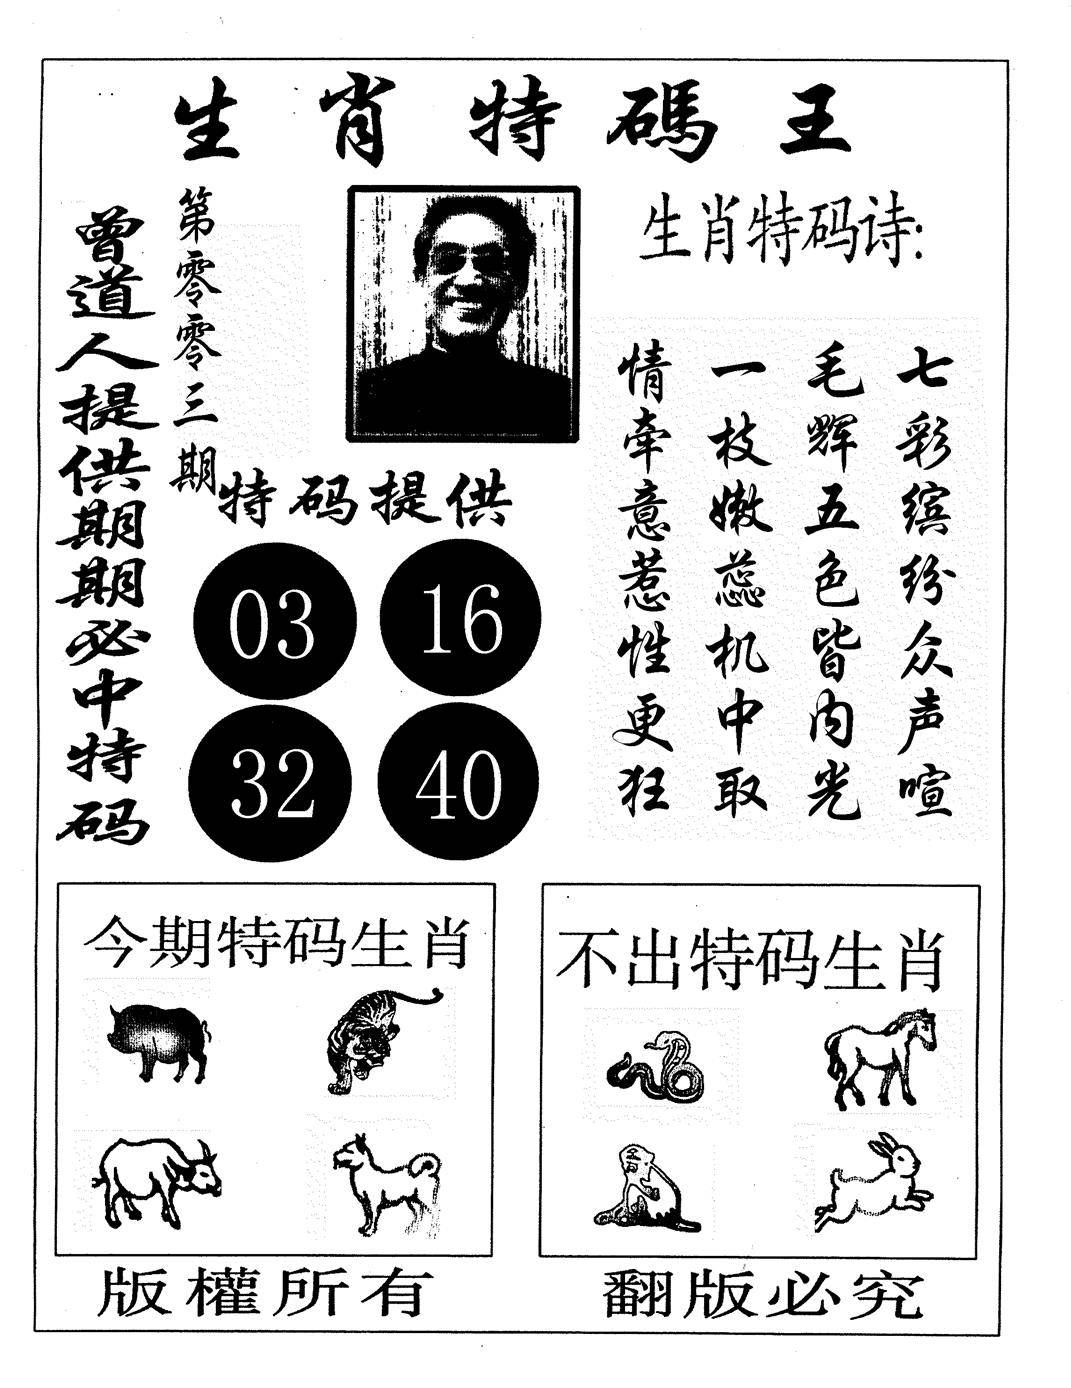 生肖特碼王
曾道人提供期期必中特码
第零零三期
生肖特码诗:
七彩缤纷众声喧
毛辉五色皆内光
一枝嫩蕊机中取
情牵意惹性更狂
特码提供
03 16
32 40
今期特码生肖
不出特码生肖
版權所有
翻版必究